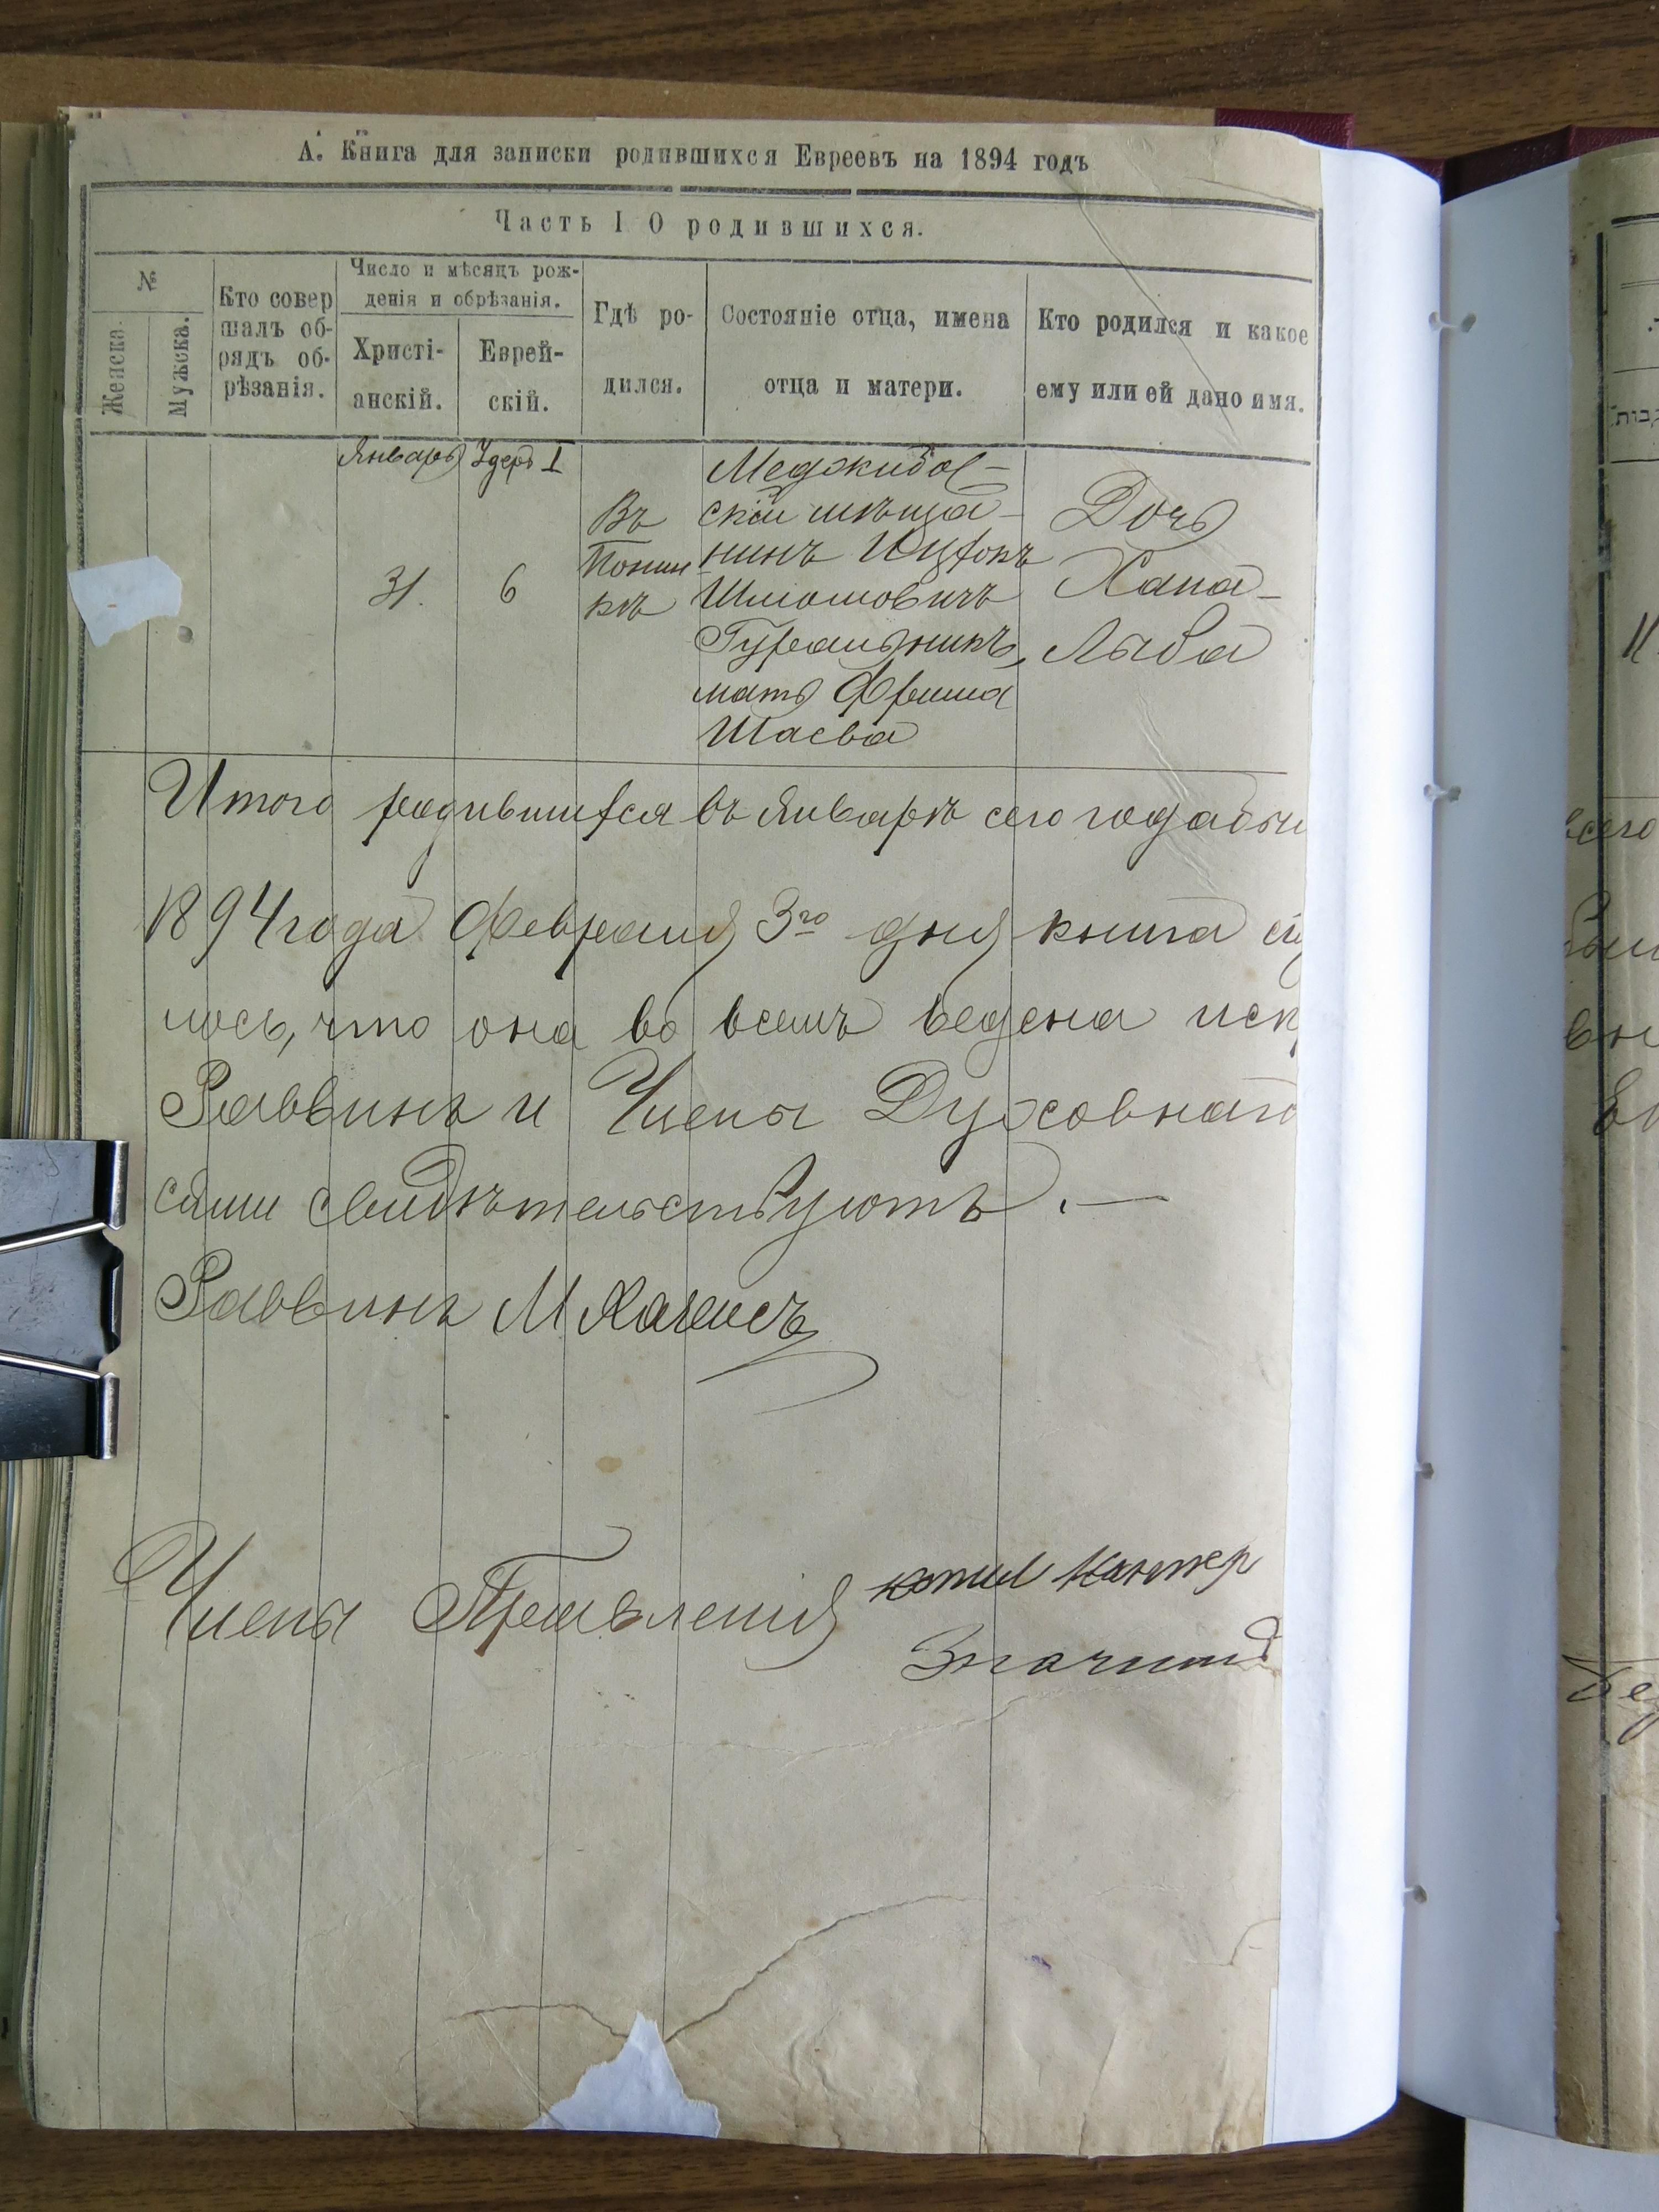 А. Книга для записки родившихся Евреевъ на 1894 годъ
Часть I О родившихся.
№
Женска.
Мужска.
Кто совер
шалъ об-
рядъ об-
рѣзанія.
Число и мѣсяцъ рож-
денія и обрѣзанія.
Христі-
анскій.
Еврей-
скій.
Гдѣ ро-
дился.
Состояніе отца, имена
отца и матери.
Кто родился и какое
ему или ей дано имя.
Январь
31.
Адеръ I
6
Въ
Понин
кѣ
Меджибов-
скій мѣща-
нинъ Ицхокъ
Шмомовичъ
Гуральникъ,
мать Фрима
Шаева
Дочь
Хана-
Лыба
Итого родившихся въ Январѣ сего года
1894 года Февраля 3го дня книга сі
лось, что она во всемъ ведена иск
Раввинъ и Члены Духовнаго
симъ свидѣтельствуютъ. —
Раввинъ М
Члены Правленія
Кантер
всего